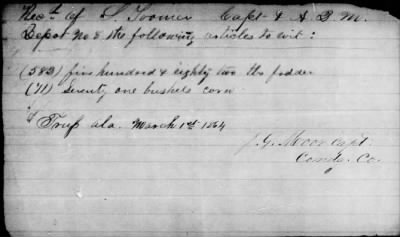 Recd of S Toomer Capt & A Q M.
Depot No 8 the following articles to wit:
(582) five hundred & eighty two lbs fodder
(71) Seventy one bushels corn
Ala. March 1st 1864
J. G. Moor Capt
Comdg. Co.